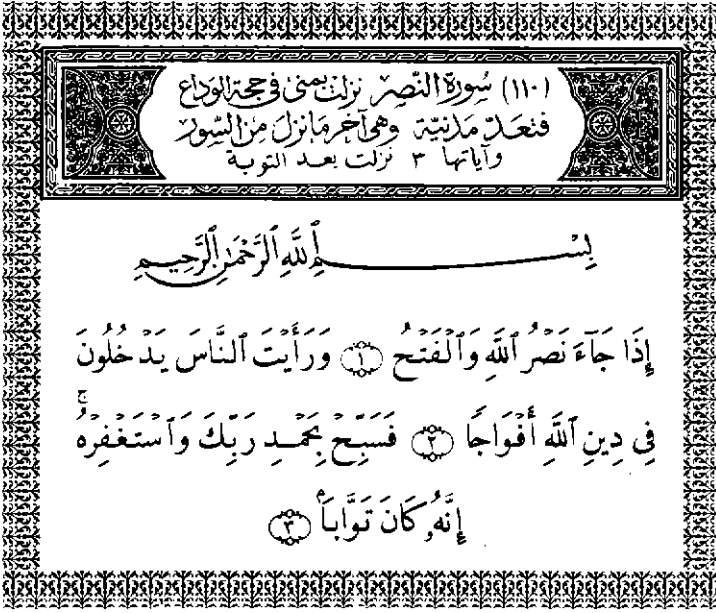 (١١٠) سُورَةُ النَّصِر نزلت بمنى في حجة الوداع
فتعدّ مَدنيّة وهى آخر مَا نزلَ مِنَ السّوَر
وآياتها ٣ نزلت بعد التوبة
بِسْمِ ٱللَّهِ ٱلرَّحْمَٰنِ ٱلرَّحِيمِ
إِذَا جَآءَ نَصْرُ ٱللَّهِ وَٱلْفَتْحُ ١ وَرَأَيْتَ ٱلنَّاسَ يَدْخُلُونَ
فِي دِينِ ٱللَّهِ أَفْوَاجًا ٢ فَسَبِّحْ بِحَمْدِ رَبِّكَ وَٱسْتَغْفِرْهُ ۚ
إِنَّهُۥ كَانَ تَوَّابَۢا ٣